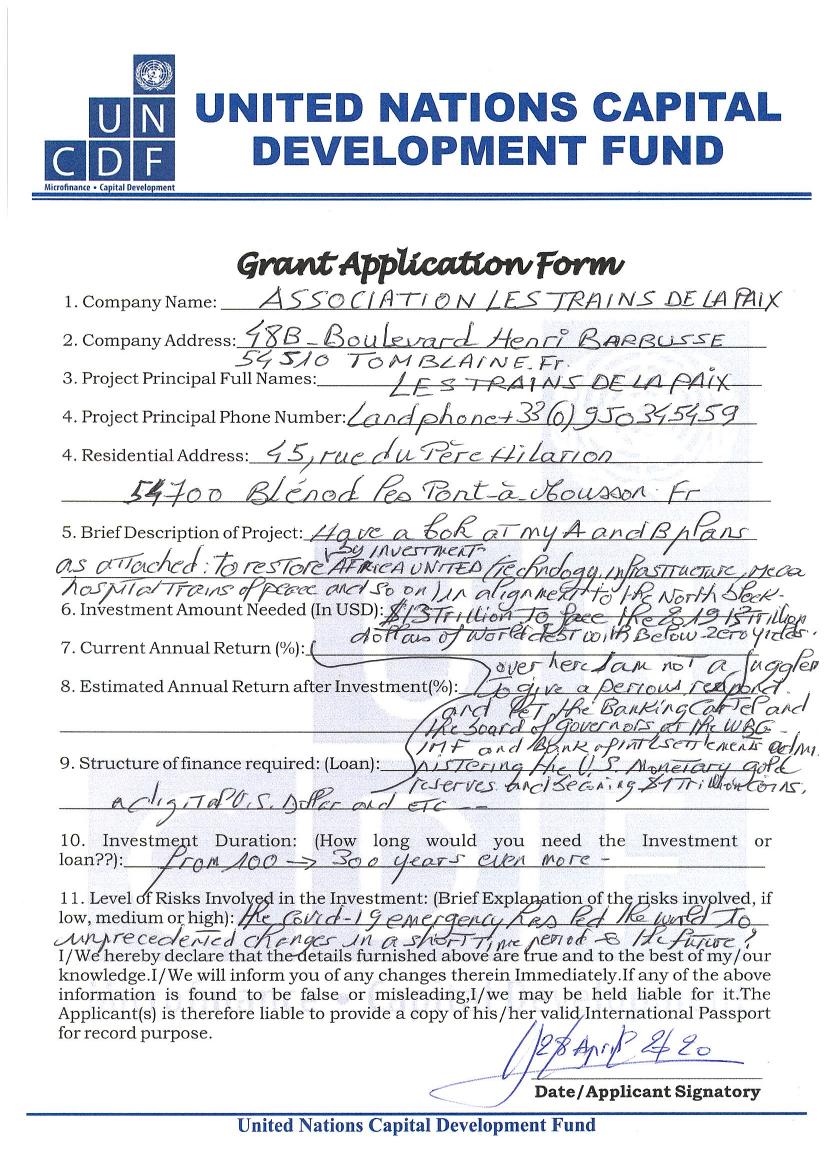 UN
CDF
Microfinance • Capital Development
UNITED NATIONS CAPITAL
DEVELOPMENT FUND
Grant Application Form
1. Company Name: ASSOCIATION LES TRAINS DE LA PAIX
2. Company Address: 48B - Boulevard Henri BARBUSSE
54510 TOMBLAINE. Fr.
3. Project Principal Full Names: LES TRAINS DE LA PAIX
4. Project Principal Phone Number: Landphone +33(6)950345459
4. Residential Address: 45, rue du Père Hilarion
54700 Blénod les Pont-à-Mousson. Fr
5. Brief Description of Project: Have a look at my A and B plans
by investment
as attached: to restore AFRICA UNITED (technology, infrastructure, mega
hospital Trains of peace and so on) in alignment to the North block-
6. Investment Amount Needed (In USD): $13 Trillion to face the 2019 Trillion
dollars of world debt with Below-zero yields.
7. Current Annual Return (%):
over here I am not a juggler
8. Estimated Annual Return after Investment(%): to give a serious respond
and let the Banking Cartel and
the board of Governors at the WBG-
IMF and Bank of int'l settlements admi
9. Structure of finance required: (Loan): nistering the U.S. Monetary gold
reserves and $1 Trillion coins,
a digital U.S. Dollar and etc ---
10. Investment Duration: (How long would you need the Investment or
loan??): from 100 → 300 years even more -
11. Level of Risks Involved in the Investment: (Brief Explanation of the risks involved, if
low, medium or high): the Covid-19 emergency has led the world to
unprecedented changes in a short time period & the future?
I/We hereby declare that the details furnished above are true and to the best of my/our
knowledge.I/We will inform you of any changes therein Immediately.If any of the above
information is found to be false or misleading,I/we may be held liable for it.The
Applicant(s) is therefore liable to provide a copy of his/her valid International Passport
for record purpose.
28 April 2020
Date/Applicant Signatory
United Nations Capital Development Fund